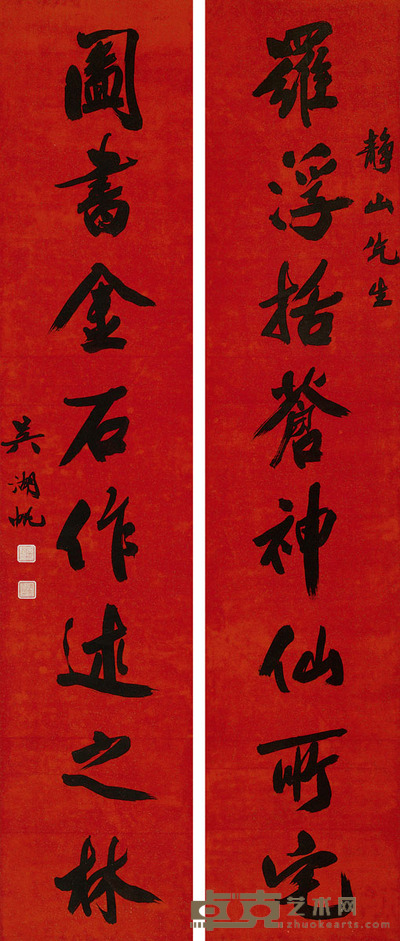 靜山先生
羅浮括蒼神仙所宅
圖書金石作述之林
吳湖帆
卓克艺术网
zhuokearts.com